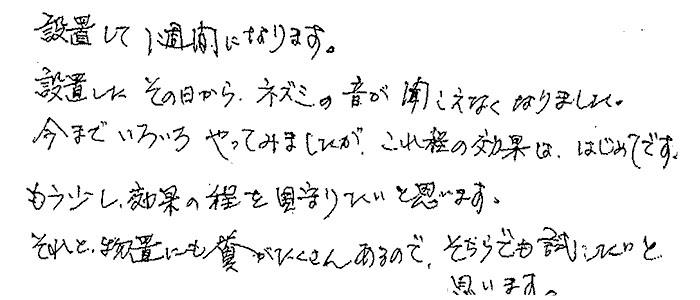 設置して1週間になります。
設置したその日から、ネズミの音が聞こえなくなりました。
今までいろいろやってみましたが、これ程の効果は、はじめてです。
もう少し、効果の程を見守りたいと思います。
それと、物置にも糞がたくさんあるので、そちらでも試したいと
思います。